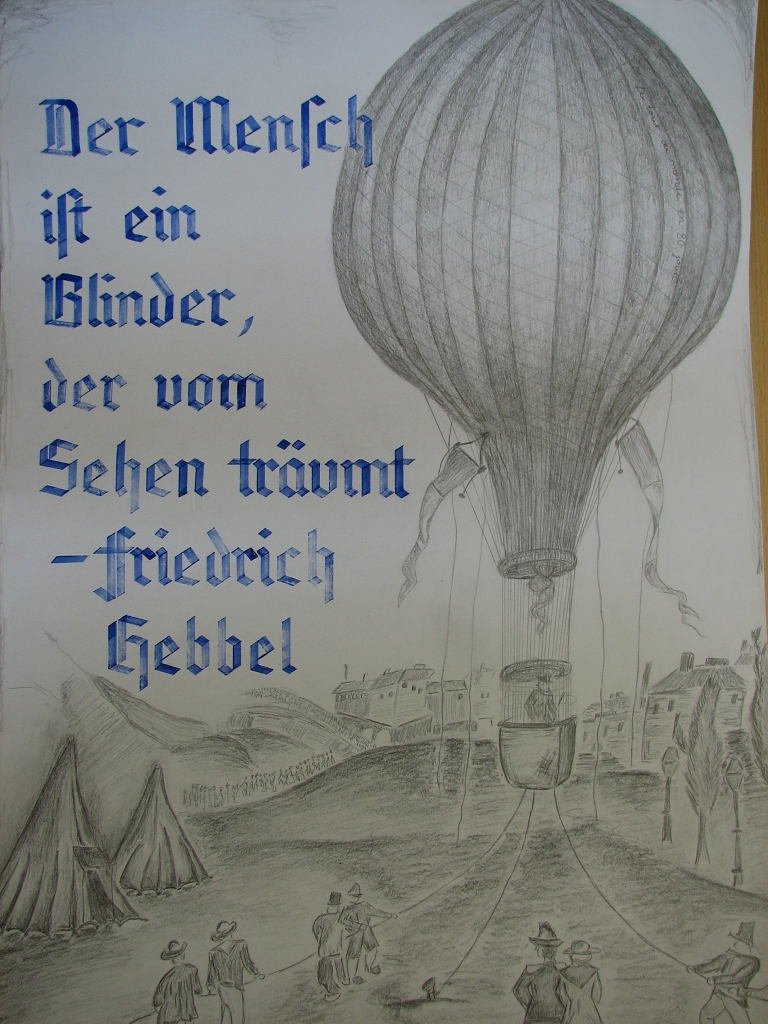 Der Menſch
iſt ein
Blinder,
der vom
Sehen träumt
-Friedrich
Hebbel
en 80 jours